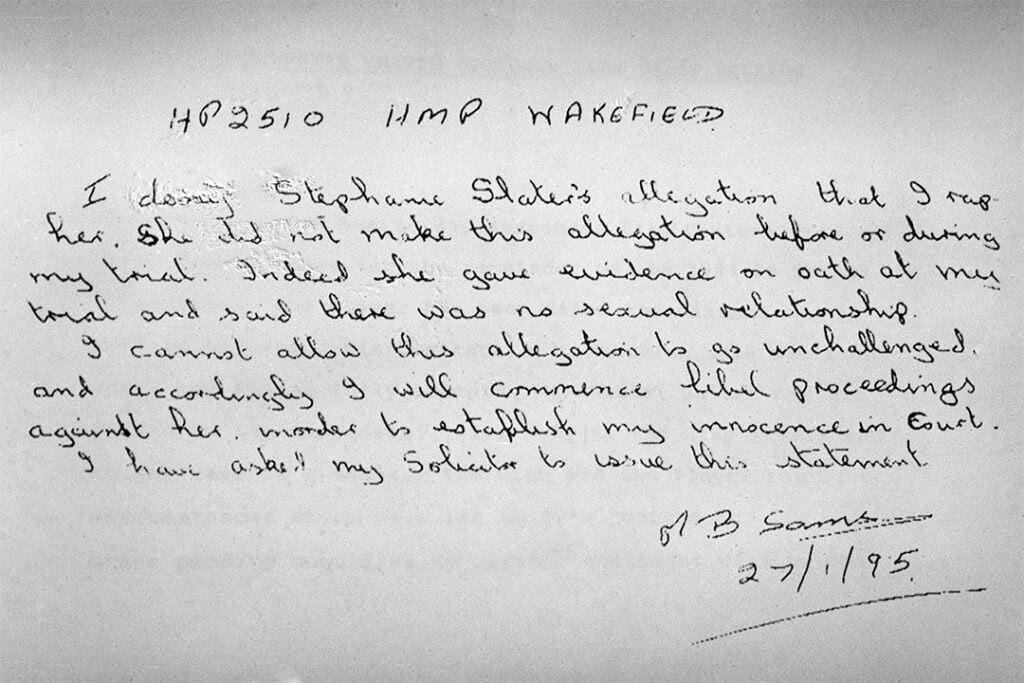 HP2510 HMP WAKEFIELD
I deny Stephanie Slater's allegation that I rap
her. She did not make this allegation before or during
my trial. Indeed she gave evidence on oath at my
trial and said there was no sexual relationship.
I cannot allow this allegation to go unchallenged.
and accordingly I will commence libel proceedings
against her. inorder to establish my innocence in Court.
I have asked my Solicitor to issue this statement
B Sams
27/1/95.